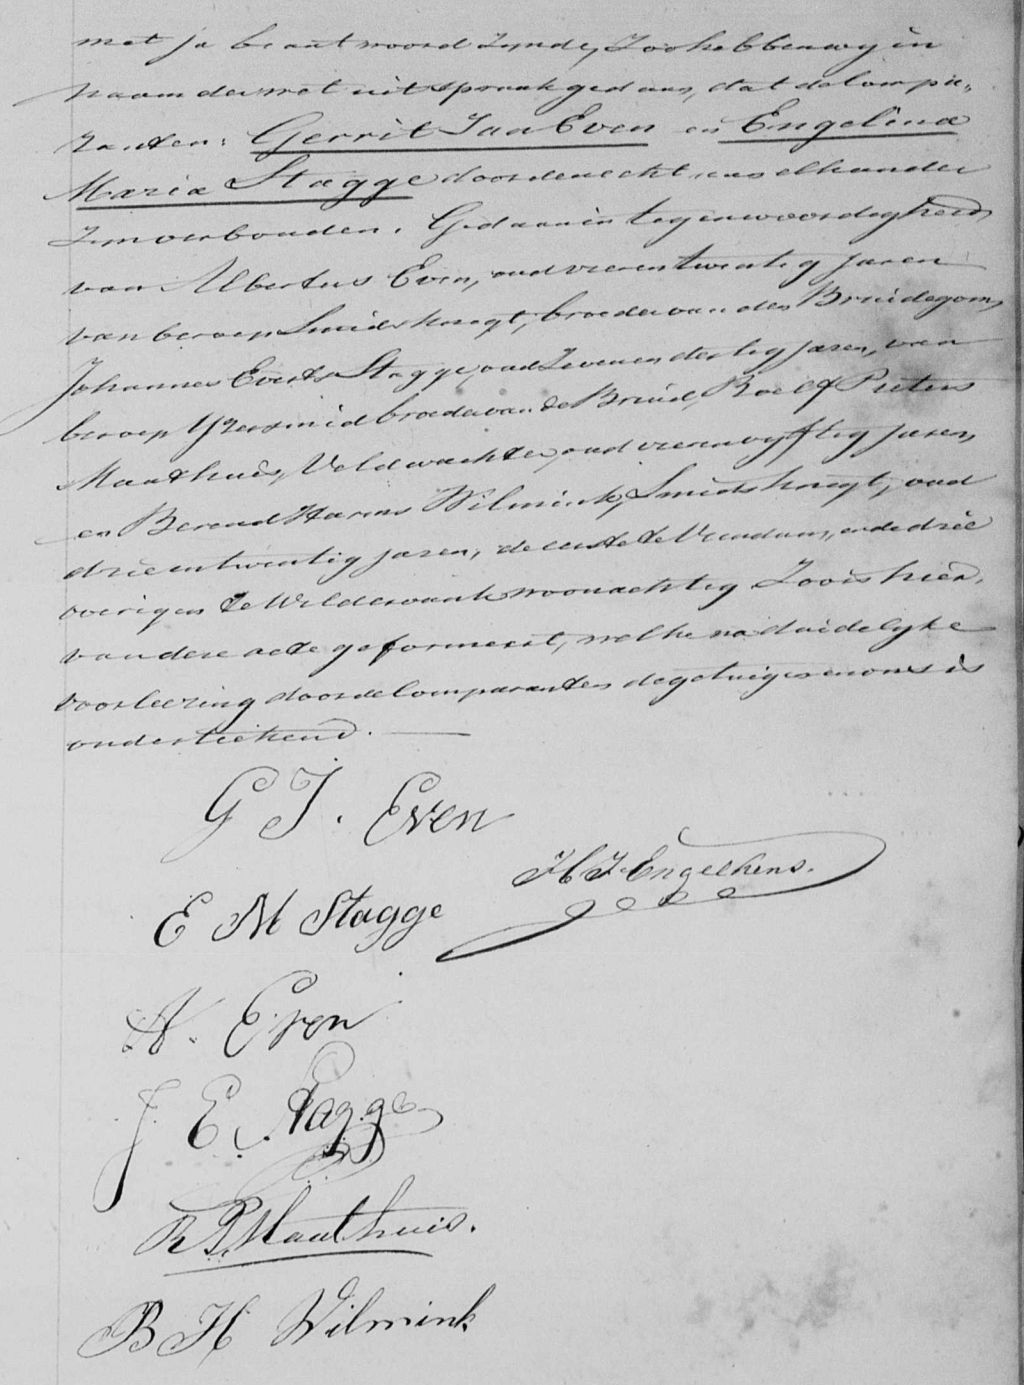 met ja beantwoord zynde, Zoo hebben wy in
naam der wet uitspraak gedaan, dat de Compa„
ranten: Gerrit Jan Even en Engelina
Maria Stagge door den echt aan elkander
Zyn verbonden. Gedaan in tegenwoordigheid
van Albertus Even, oud vierentwintig jaren
van beroep Smidsknegt, broeder van den Bruidegom,
Johannes Everts Stagge, oud Zevenendertig jaren, van
beroep Yzersmid broeder van de Bruid, Roelf Pieters
Maathuis, Veldwachter, oud vierenvyftig jaren,
en Berend Harms Wilmink, Smidsknegt, oud
drieentwintig jaren, de eerste te Veendam, en de drie
overigen te Wildervank woonachtig Zoo is hier„
van deze acte geformeert, welke na duidelyke
voorleezing door de Comparanten de getuigen en ons is
onderteekend.
G J. Even
H J. Engelkens.
E M Stagge
A. Even
J. E. Stagge
R P Maathuis.
B H Wilmink